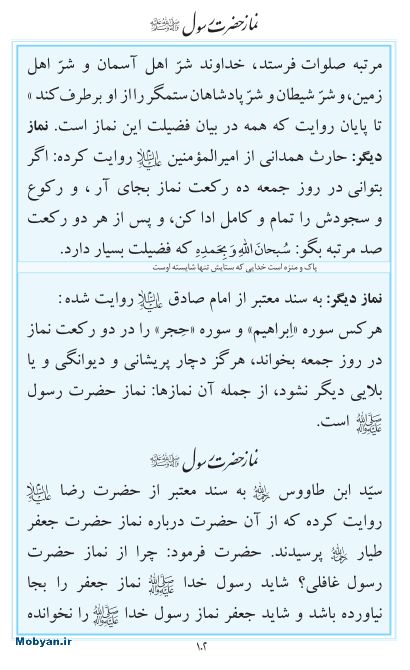 نماز حضرت رسول ﷺ
مرتبه صلوات فرستد، خداوند شرّ اهل آسمان و شرّ اهل
زمین، و شرّ شیطان و شرّ پادشاهان ستمگر را از او برطرف کند »
تا پایان روایت که همه در بیان فضیلت این نماز است. نماز
دیگر: حارث همدانی از امیرالمؤمنین علیه‌السلام روایت کرده: اگر
بتوانی در روز جمعه ده رکعت نماز بجای آر، و رکوع
و سجودش را تمام و کامل ادا کن، و پس از هر دو رکعت
صد مرتبه بگو: سُبحانَ اللهِ وَ بِحَمدِهِ که فضیلت بسیار دارد.
پاک و منزه است خدایی که ستایش تنها شایسته اوست
نماز دیگر: به سند معتبر از امام صادق علیه‌السلام روایت شده:
هرکس سوره «اِبراهیم» و سوره «حِجر» را در دو رکعت نماز
در روز جمعه بخواند، هرگز دچار پریشانی و دیوانگی و یا
بلایی دیگر نشود، از جمله آن نمازها: نماز حضرت رسول
ﷺ است.
نماز حضرت رسول ﷺ
سیّد ابن طاووس رحمه‌الله به سند معتبر از حضرت رضا علیه‌السلام
روایت کرده که از آن حضرت درباره نماز حضرت جعفر
طیار رحمه‌الله پرسیدند. حضرت فرمود: چرا از نماز حضرت
رسول غافلی؟ شاید رسول خدا ﷺ نماز جعفر را بجا
نیاورده باشد و شاید جعفر نماز رسول خدا ﷺ را نخوانده
Mobyan.ir
۱۰۲